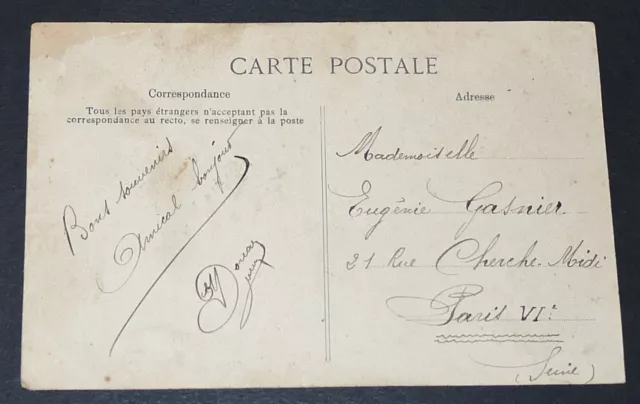 CARTE POSTALE
Correspondance
Tous les pays étrangers n'acceptant pas la
correspondance au recto, se renseigner à la poste
Bons souvenirs
Amical bonjour
Adresse
Mademoiselle
Eugénie Gasnier
21 Rue Cherche-Midi
Paris VIe
(Seine)